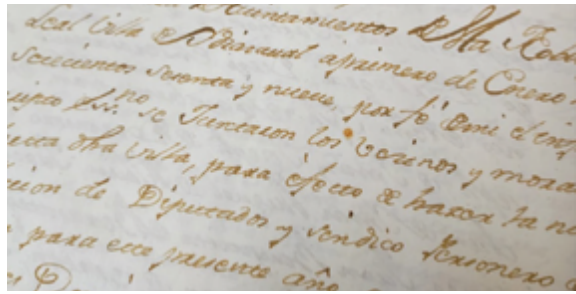 Aiuntamientos De Esta Noble
Leal Villa a primero de Enero
settecientos sesenta y nueve, por fè de mi el inf
no se Juntaron los vecinos y mora
dha Villa, para efecto de hazer la no
cion de Diputados y sindico Personero
para este presente año